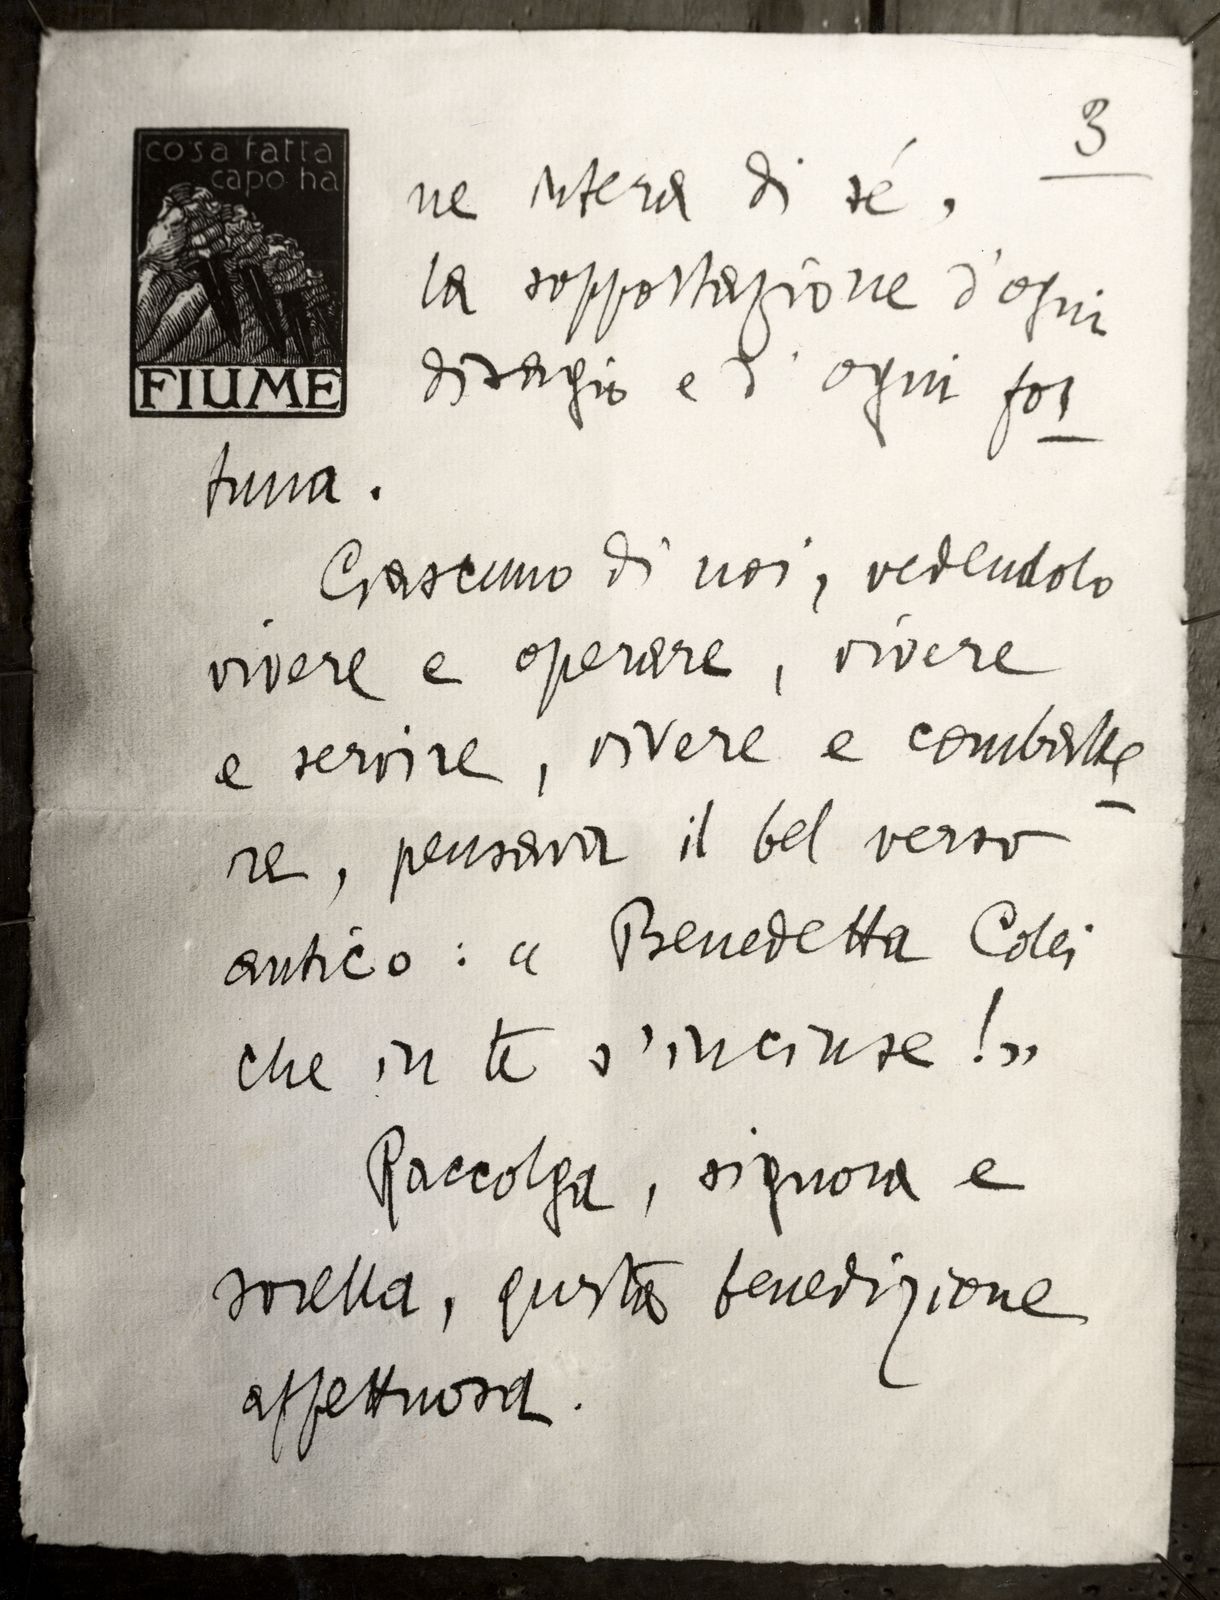 3
cosa fatta
capo ha
FIUME
ne intera di sé,
la sopportazione d'ogni
disagio e d'ogni for
tuna.
Ciascuno di noi, vedendolo
vivere e operare, vivere
e servire, vivere e combatte
re, pensava il bel verso
antico: « Benedetta Colei
che in te s'incinse!»
Raccolga, signora e
sorella, questa benedizione
affettuosa.